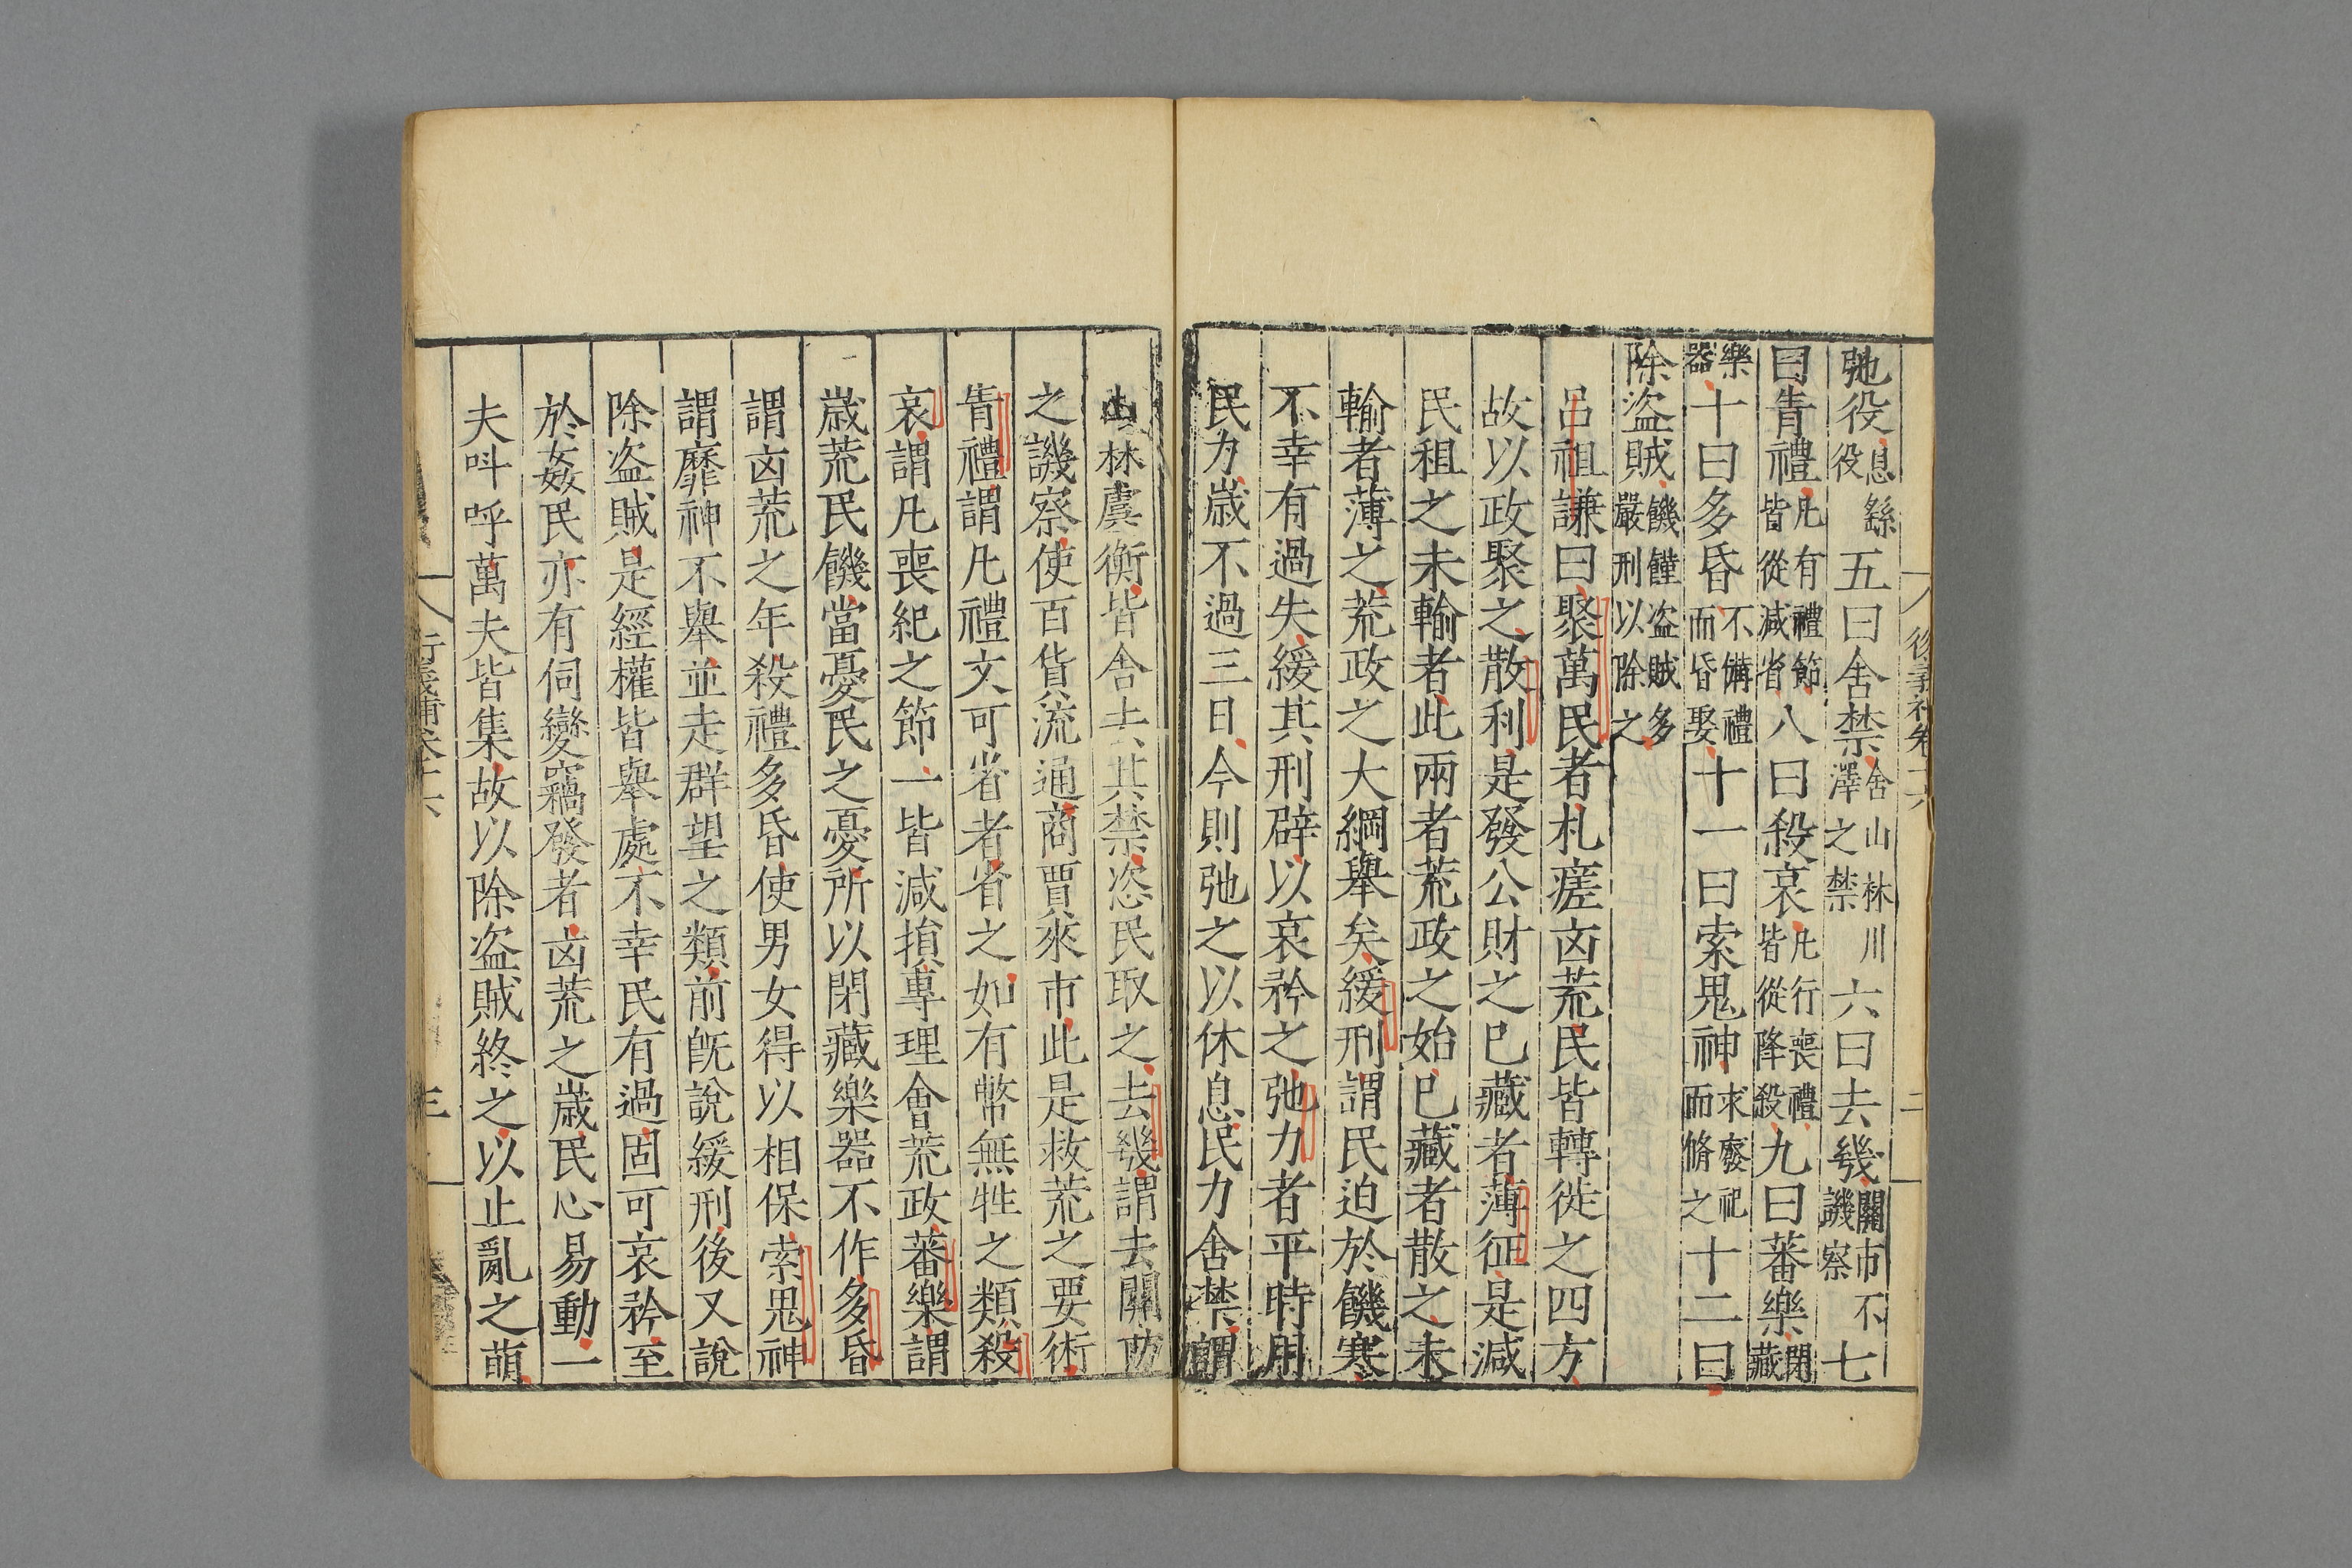 弛役息繇役五曰舍禁舍山林川澤之禁六曰去幾關市不譏察七
曰眚禮凡有禮節皆從減省八曰殺哀凡行喪禮皆從降殺九曰蕃樂閉藏
樂器十曰多昏不備禮而昏娶十一曰索鬼神求廢祀而脩之十二曰
除盜賊饑饉盜賊多嚴刑以除之
呂祖謙曰聚萬民者札瘥凶荒民皆轉徙之四方
故以政聚之散利是發公財之已藏者薄征是減
民租之未輸者此兩者荒政之始已藏者散之未
輸者薄之荒政之大綱舉矣緩刑謂民迫於饑寒
不幸有過失緩其刑辟以哀矜之弛力者平時用
民力歲不過三日今則弛之以休息民力舍禁謂
山林虞衡皆舍去其禁恣民取之去幾謂去關防
之譏察使百貨流通商賈來市此是救荒之要術
眚禮謂凡禮文可省者省之如有幣無牲之類殺
哀謂凡喪紀之節一皆減損專理會荒政蕃樂謂
歲荒民饑當憂民之憂所以閉藏樂器不作多昏
謂凶荒之年殺禮多昏使男女得以相保索鬼神
謂靡神不舉並走群望之類前旣說緩刑後又說
除盜賊是經權皆舉處不幸民有過固可哀矜至
於姦民亦有伺變竊發者凶荒之歲民心易動一
夫呌呼萬夫皆集故以除盜賊終之以止亂之萌
三